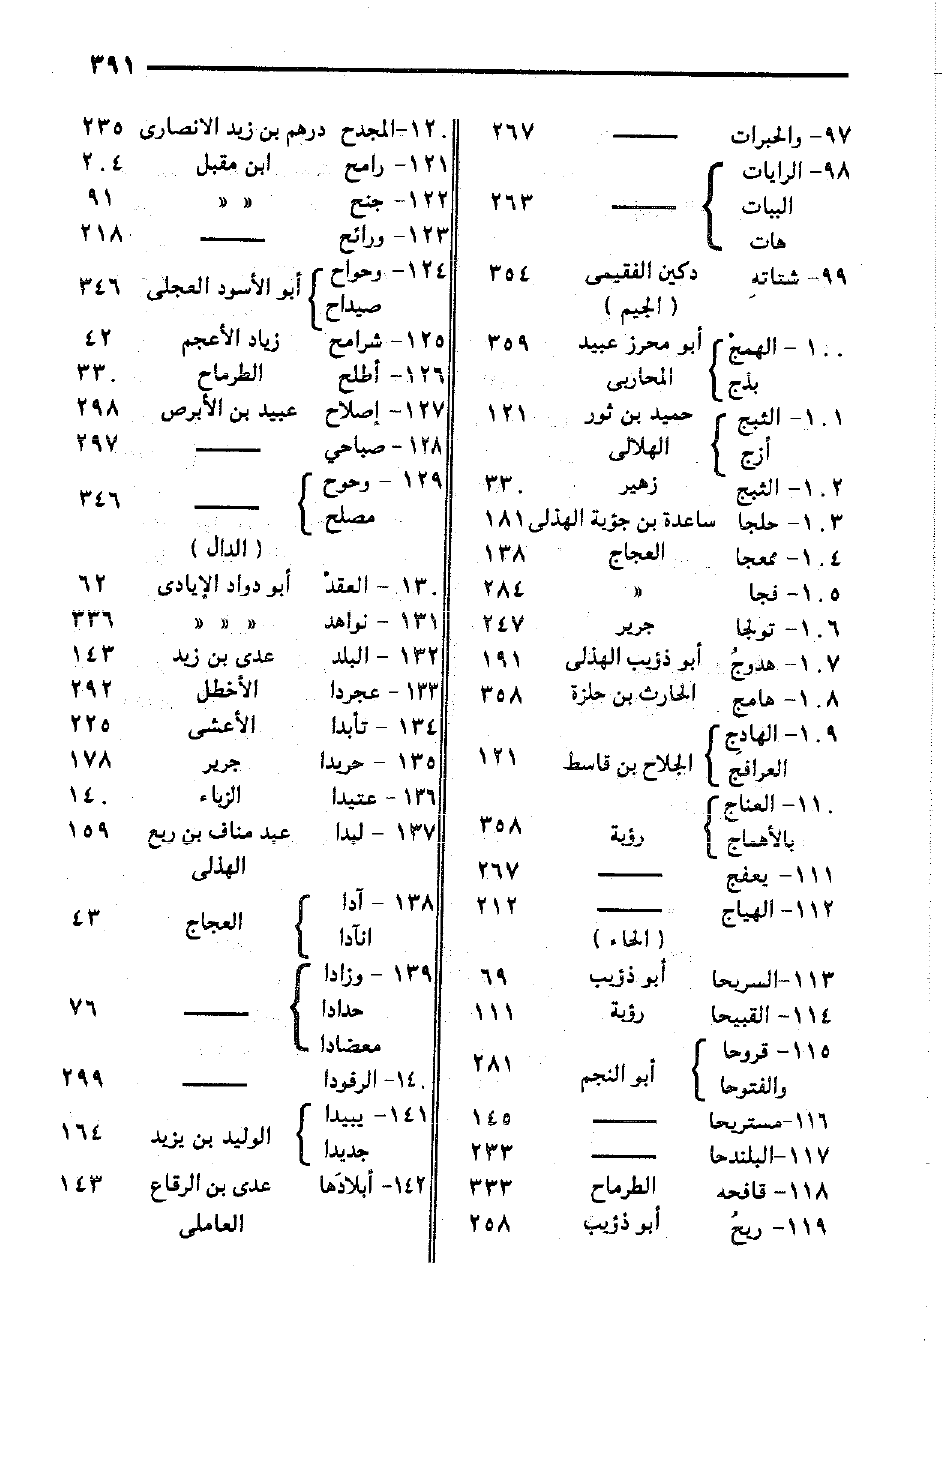 ٣٩١
٩٧- والحبرات ——— ٢٦٧
٩٨- الرايات
البيات ——— ٢٦٣
هات
٩٩- شتاتهِ دكين الفقيمى ٣٥٤
( الجيم )
١٠٠ - الهمجْ أبو محرز عبيد ٣٥٩
بذج المحاربى
١٠١- الثبج حميد بن ثور ١٢١
أزج الهلالى
١٠٢- الثبج زهير ٣٣٠
١٠٣- حلجا ساعدة بن جؤية الهذلى ١٨١
١٠٤- ممعجا العجاج ١٣٨
١٠٥- فجا » ٢٨٤
١٠٦- تولجا جرير ٢٤٧
١٠٧- هدوجُ أبو ذؤيب الهذلى ١٩١
١٠٨- هامج الحارث بن حلزة ٣٥٨
١٠٩- الهادجِ
العرافجِ الجلاح بن قاسط ١٢١
١١٠- العناج
بالأهماج رؤبة ٣٥٨
١١١- يعفج ——— ٢٦٧
١١٢- الهياج ——— ٢١٢
( الحاء )
١١٣-السريحا أبو ذؤيب ٦٩
١١٤- القبيحا رؤبة ١١١
١١٥- قروحا
والفتوحا أبو النجم ٢٨١
١١٦-مستريحا ——— ١٤٥
١١٧-البلندحا ——— ٢٣٣
١١٨- قافحه الطرماح ٣٣٣
١١٩- ريحُ أبو ذؤيب ٢٥٨
١٢٠-المجدح درهم بن زيد الانصارى ٢٣٥
١٢١- رامح ابن مقبل ٢٠٤
١٢٢- جنح » » ٩١
١٢٣- ورائح ——— ٢١٨
١٢٤- وحواح
صيداح أبو الأسود العجلى ٣٤٦
١٢٥- شرامح زياد الأعجم ٤٢
١٢٦- أطلح الطرماح ٣٣٠
١٢٧- إصلاح عبيد بن الأبرص ٢٩٨
١٢٨- صباحي ——— ٢٩٧
١٢٩ - وحوح
مصلح ——— ٣٤٦
( الدال )
١٣٠ - العقدْ أبو دواد الإيادى ٦٢
١٣١ - نواهد » » » ٣٣٦
١٣٢ - البلد عدى بن زيد ١٤٣
١٣٣ - عجردا الأخطل ٢٩٢
١٣٤ - تأبدا الأعشى ٢٢٥
١٣٥ - حريدا جرير ١٧٨
١٣٦ - عتيدا الزباء ١٤٠
١٣٧ - لبدا عبد مناف بن ربع ١٥٩
الهذلى
١٣٨ - آدا
انآدا العجاج ٤٣
١٣٩ - وزادا
حدادا ——— ٧٦
معضادا
١٤٠- الرقودا ——— ٢٩٩
١٤١- يبيدا
جديدا الوليد بن يزيد ١٦٤
١٤٢- أبلادَها عدى بن الرقاع ١٤٣
العاملى